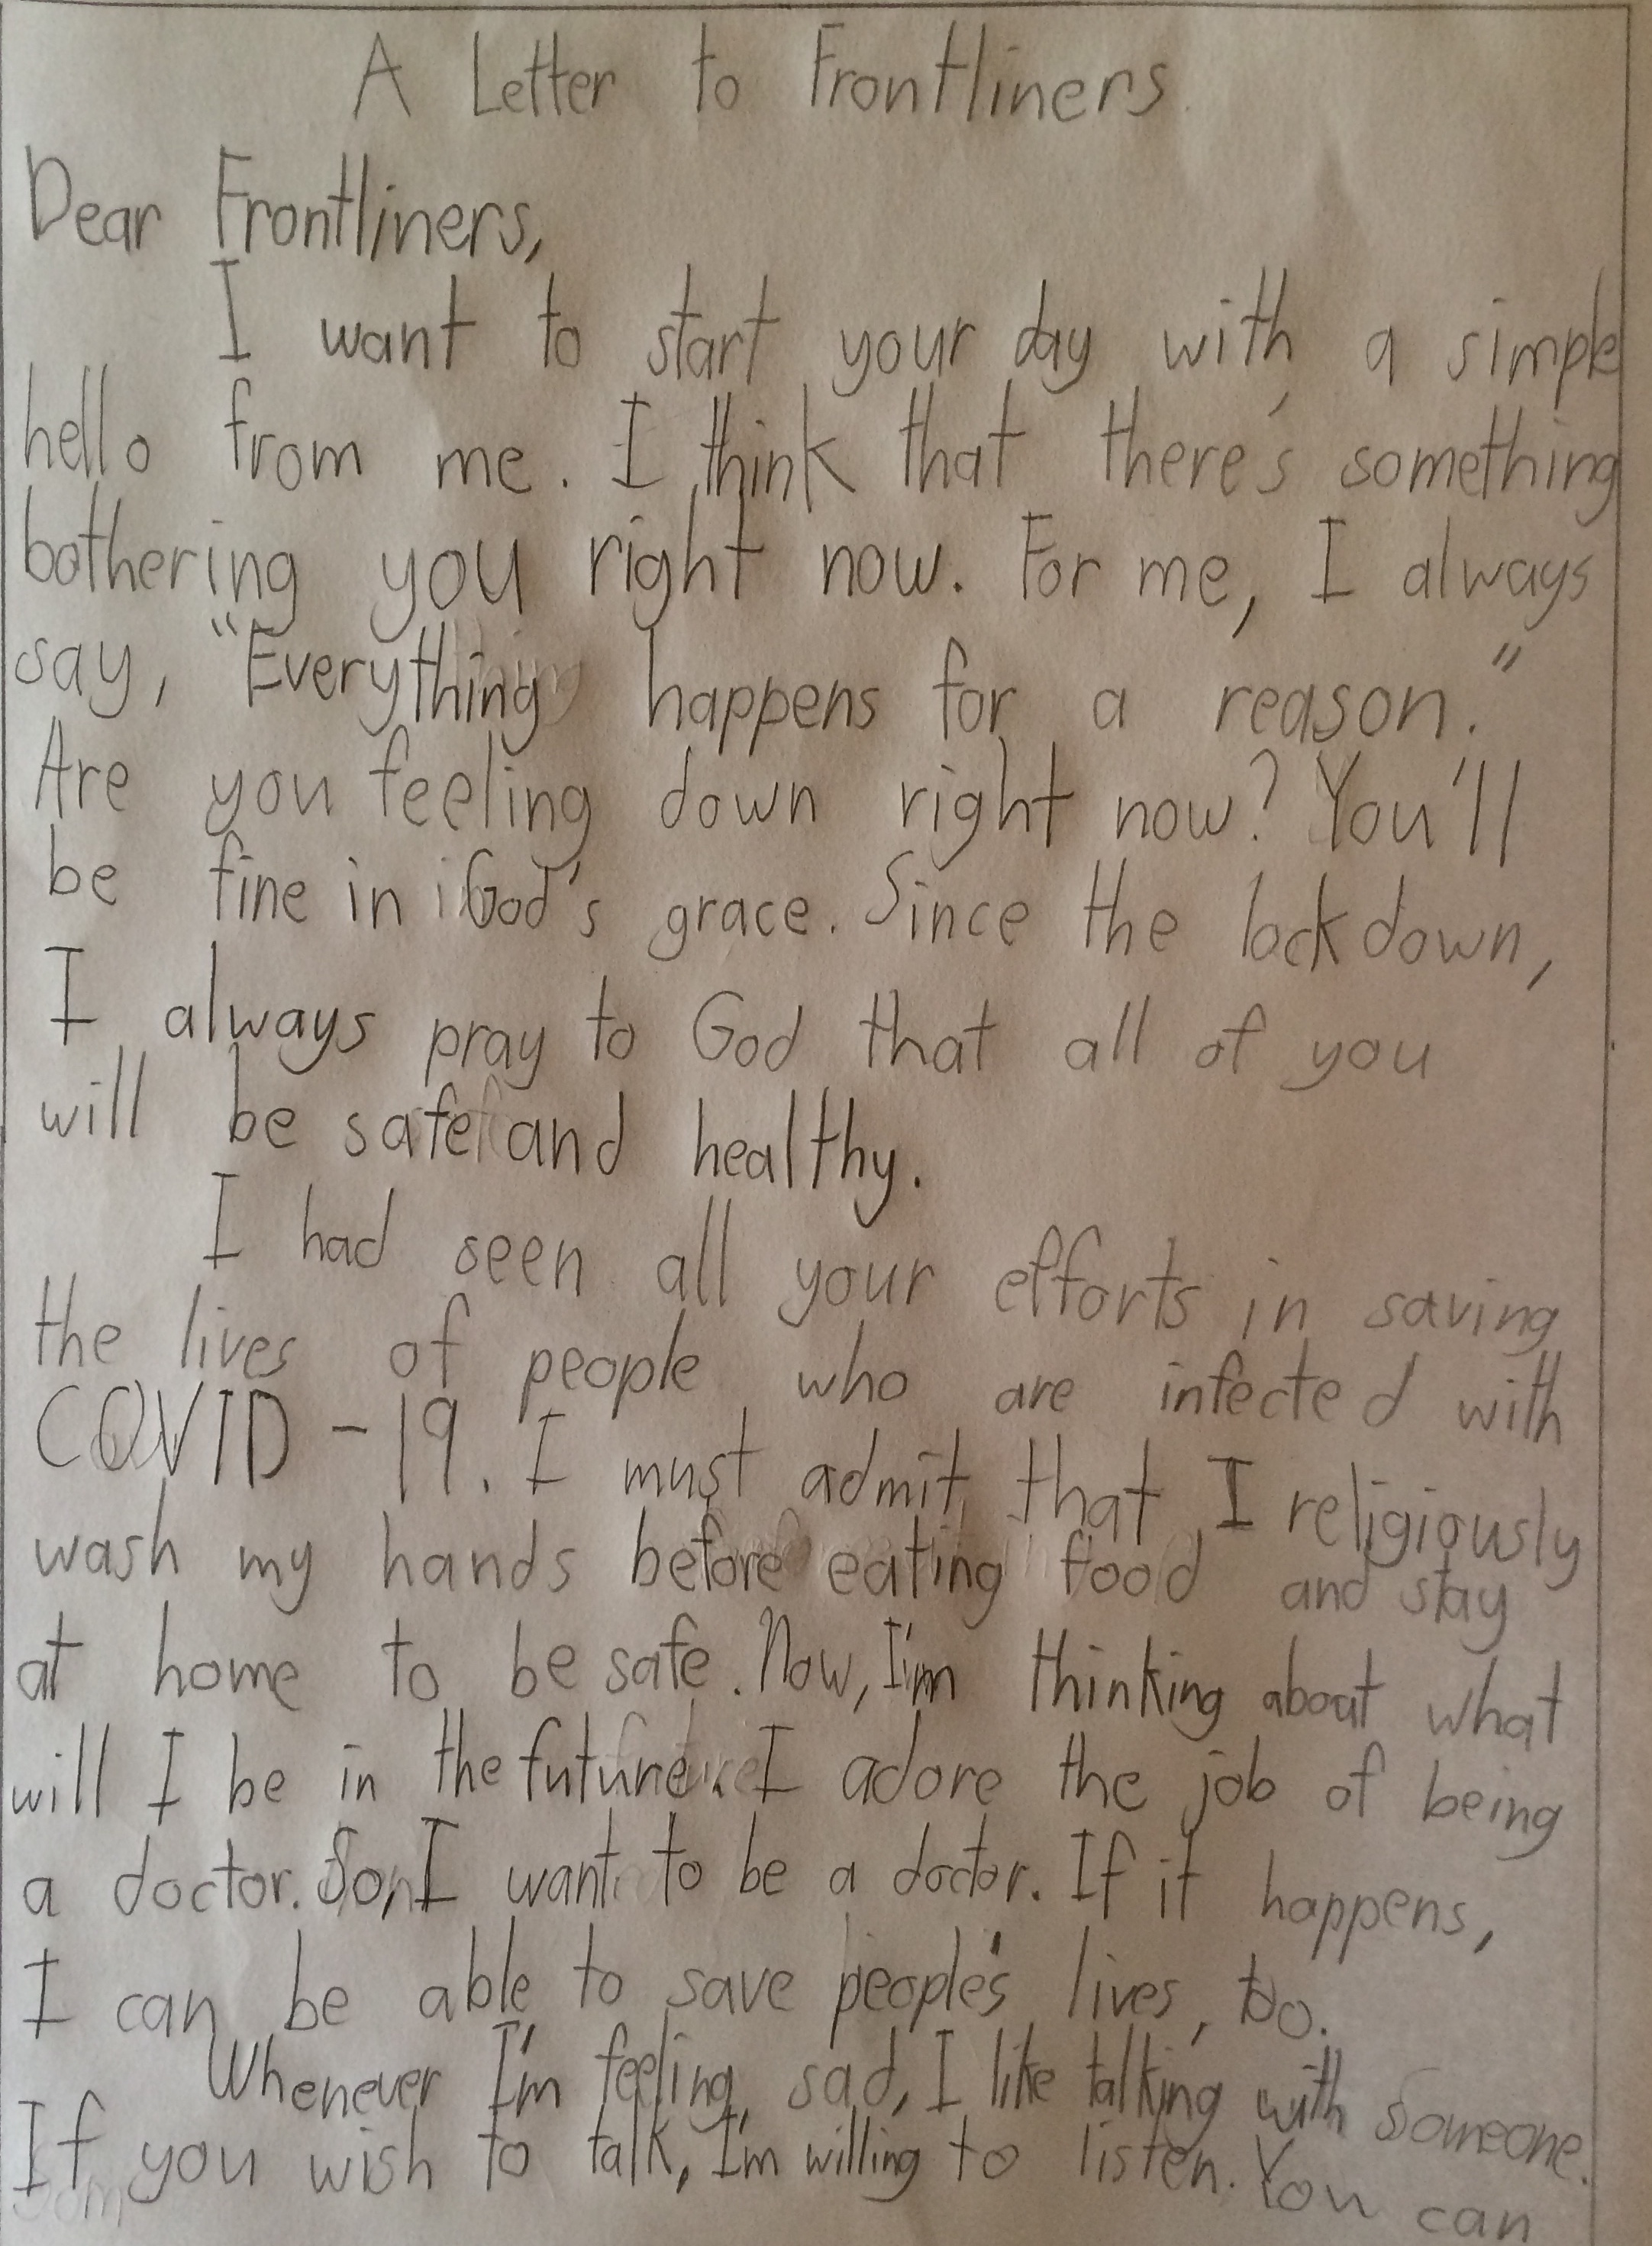 A Letter to Frontliners
Dear Frontliners,
I want to start your day with a simple
hello from me. I think that there's something
bothering you right now. For me, I always
say, "Everything happens for a reason."
Are you feeling down right now? You'll
be fine in God's grace. Since the lockdown,
I always pray to God that all of you
will be safe and healthy.
I had seen all your efforts in saving
the lives of people who are infected with
COVID-19. I must admit that I religiously
wash my hands before eating food and stay
at home to be safe. Now, I'm thinking about what
will I be in the future. I adore the job of being
a doctor. So, I want to be a doctor. If it happens,
I can be able to save people's lives, too.
Whenever I'm feeling sad, I like talking with someone.
If you wish to talk, I'm willing to listen. You can